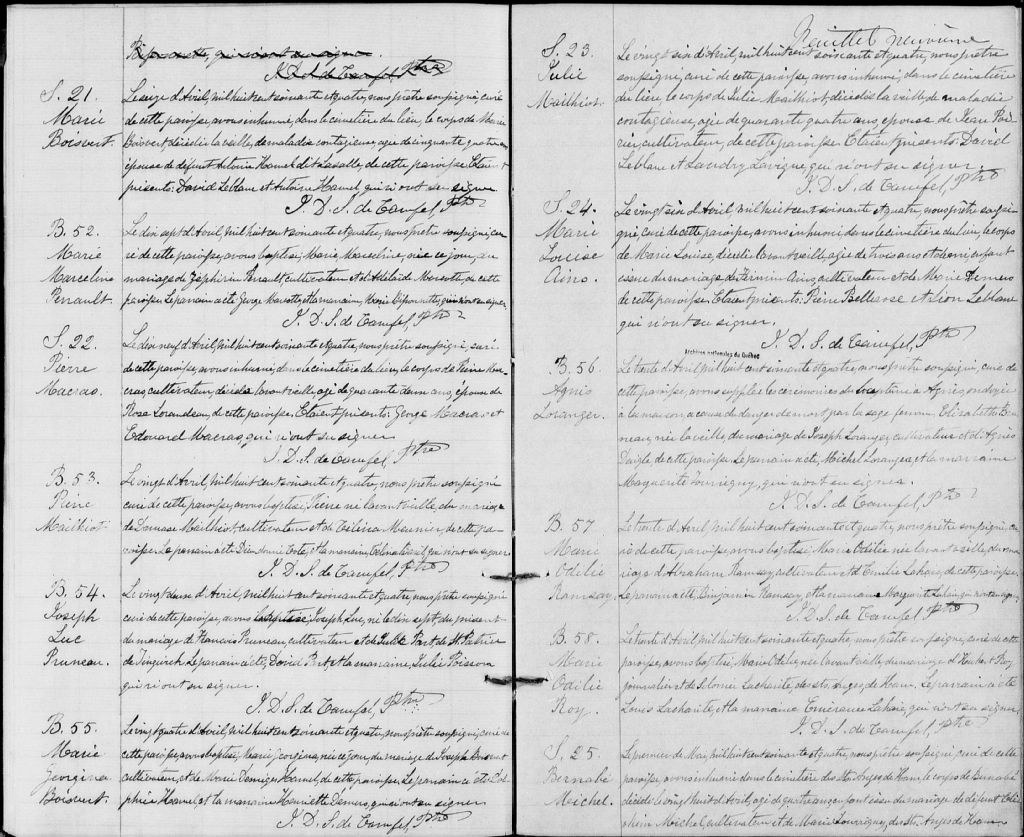 qui n'ont su signer.
J. D. S. de Tamfel, Ptre
S. 21.
Marie
Boisvert.
Le seize d'Avril, mil huit cent soixante et quatre, nous prêtre soussigné, curé
de cette paroisse, avons inhumé, dans le cimetière du lieu, le corps de Marie
Boisvert décédée la veille, de maladie contagieuse, agée de cinquante quatre ans
épouse de défunt Antoine Hamel dit Lasalle, de cette paroisse. Etaient
présents: David Leblanc et Antoine Hamel, qui n'ont su signer
J. D. S. de Tamfel, Ptre
B. 52.
Marie
Marceline
Perrault.
Le dix sept d'Avril, mil huit cent soixante et quatre, nous prêtre soussigné, cu-
ré de cette paroisse, avons baptisé, Marie Marceline, née ce jour, du
mariage de Zéphirin Perrault, cultivateur et d'Adelaïde Marcotte, de cette
paroisse. Le parrain a été George Marcotte, et la marraine, Marie qui n'ont su signer.
J. D. S. de Tamfel, Ptre
S. 22.
Pierre
Macras.
Le dix neuf d'Avril, mil huit cent soixante et quatre, nous prêtre soussigné, curé
de cette paroisse, avons inhumé, dans le cimetière du lieu, le corps de Pierre Ma-
cras, cultivateur, décédé l'avant veille, agé de quarante deux ans, époux de
Rose Lorandeau, de cette paroisse. Etaient présents: George Macras et
Edouard Macras, qui n'ont su signer
J. D. S. de Tamfel, Ptre
B. 53.
Pierre
Mailhiot.
Le vingt d'Avril, mil huit cent soixante et quatre, nous prêtre soussigné
curé de cette paroisse, avons baptisé, Pierre né l'avant veille, du mariage
de Damase Mailhiot cultivateur et de Meunier, de cette pa-
roisse. Le parrain a été Dieudonné Coté, et la marraine, qui n'ont su signer.
J. D. S. de Tamfel, Ptre
B. 54.
Joseph
Luc
Pruneau.
Le vingt deux d'Avril, mil huit cent soixante et quatre, nous prêtre soussigné
curé de cette paroisse, avons baptisé, Joseph Luc, né le dix sept du présent
du mariage de François Pruneau, cultivateur et de Julie Port, de St Patrice
de Tingwick. Le parrain a été, David Port, et la marraine, Julie Poisson
qui n'ont su signer.
J. D. S. de Tamfel, Ptre
B. 55.
Marie
Georgina
Boisvert.
Le vingt quatre d'Avril, mil huit cent soixante et quatre, nous prêtre soussigné, curé de
cette paroisse, avons baptisé, Marie Georgina, née ce jour, du mariage de Joseph Boisvert
cultivateur, et de Marie Hamel, de cette paroisse. Le parrain a été
Hamel, et la marraine Henriette Demers, qui n'ont su signer
J. D. S. de Tamfel, Ptre
Feuillet neuvième
S. 23.
Julie
Mailhiot.
Le vingt six d'Avril, mil huit cent soixante et quatre, nous prêtre
soussigné, curé de cette paroisse, avons inhumé, dans le cimetière
du lieu, le corps de Julie Mailhiot, décédée la veille de maladie
contagieuse, agée de quarante quatre ans, épouse de Jean
cultivateur, de cette paroisse. Etaient présents: David
Leblanc et Landry Lavigne, qui n'ont su signer.
J. D. S. de Tamfel, Ptre
S. 24.
Marie
Louise
Ains.
Le vingt six d'Avril, mil huit cent soixante et quatre, nous prêtre soussi-
gné, curé de cette paroisse, avons inhumé dans le cimetière du lieu, le corps
de Marie Louise, décédée l'avant veille, agée de trois ans et demi, enfant
issue du mariage de Firmin Ains, cultivateur et de Marie Demers
de cette paroisse. Etaient présents: Pierre Bellarse et Léon Leblanc
qui n'ont su signer.
J. D. S. de Tamfel, Ptre
Archives nationales du Québec
B. 56.
Agnès
Loranger.
Le trente d'Avril, mil huit cent soixante et quatre, nous prêtre soussigné, curé de
cette paroisse, avons suppléé les cérémonies du baptême à Agnès, ondoyée
à la maison, a cause du danger de mort par la sage femme, Elisabeth
née la veille, du mariage de Joseph Loranger, cultivateur et d'Agnès
Daigle, de cette paroisse. Le parrain a été, Michel Loranger, et la marraine
Marguerite Tourrigny, qui n'ont su signer.
J. D. S. de Tamfel, Ptre
B. 57.
Marie
Odilie
Ramsay.
Le trente d'Avril, mil huit cent soixante et quatre, nous prêtre soussigné, cu-
ré de cette paroisse, avons baptisé, Marie Odilie née l'avant veille, du ma-
riage d'Abraham Ramsay, cultivateur et d'Emilie Lahaie, de cette paroisse.
Le parrain a été, Benjamin Ramsay, et la marraine Marguerite Lahaie, qui n'ont su signer.
J. D. S. de Tamfel, Ptre
B. 58.
Marie
Odilie
Roy.
Le trente d'Avril, mil huit cent soixante et quatre, nous prêtre soussigné, curé de cette
paroisse, avons baptisé, Marie Odilie, née l'avant veille du mariage d'Hubert Roy
journalier et de Salomée Lacharité, des Sts. Anges, de Ham. Le parrain a été
Louis Lacharité, et la marraine Emérence Lahaie, qui n'ont su signer.
J. D. S. de Tamfel, Ptre
S. 25.
Bernabé
Michel.
Le premier de Mai, mil huit cent soixante et quatre, nous prêtre soussigné, curé de cette
paroisse, avons inhumé dans le cimetière des Sts Anges de Ham, le corps de Bernabé
décédé le vingt huit d'Avril, agé de quatre ans, enfant issu du mariage de défunt
Michel, cultivateur et de Marie Tourrigny, des Sts. Anges de Ham